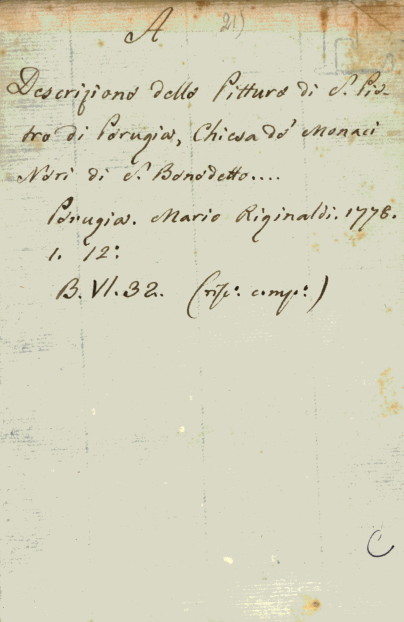 A 21)
Descrizione delle Pitture di S. Pie-
tro di Perugia, Chiesa de' Monaci
Neri di S. Benedetto....
Perugia. Mario Riginaldi. 1778.
1. 12:
B. VI. 32. (risp: comp:)
C